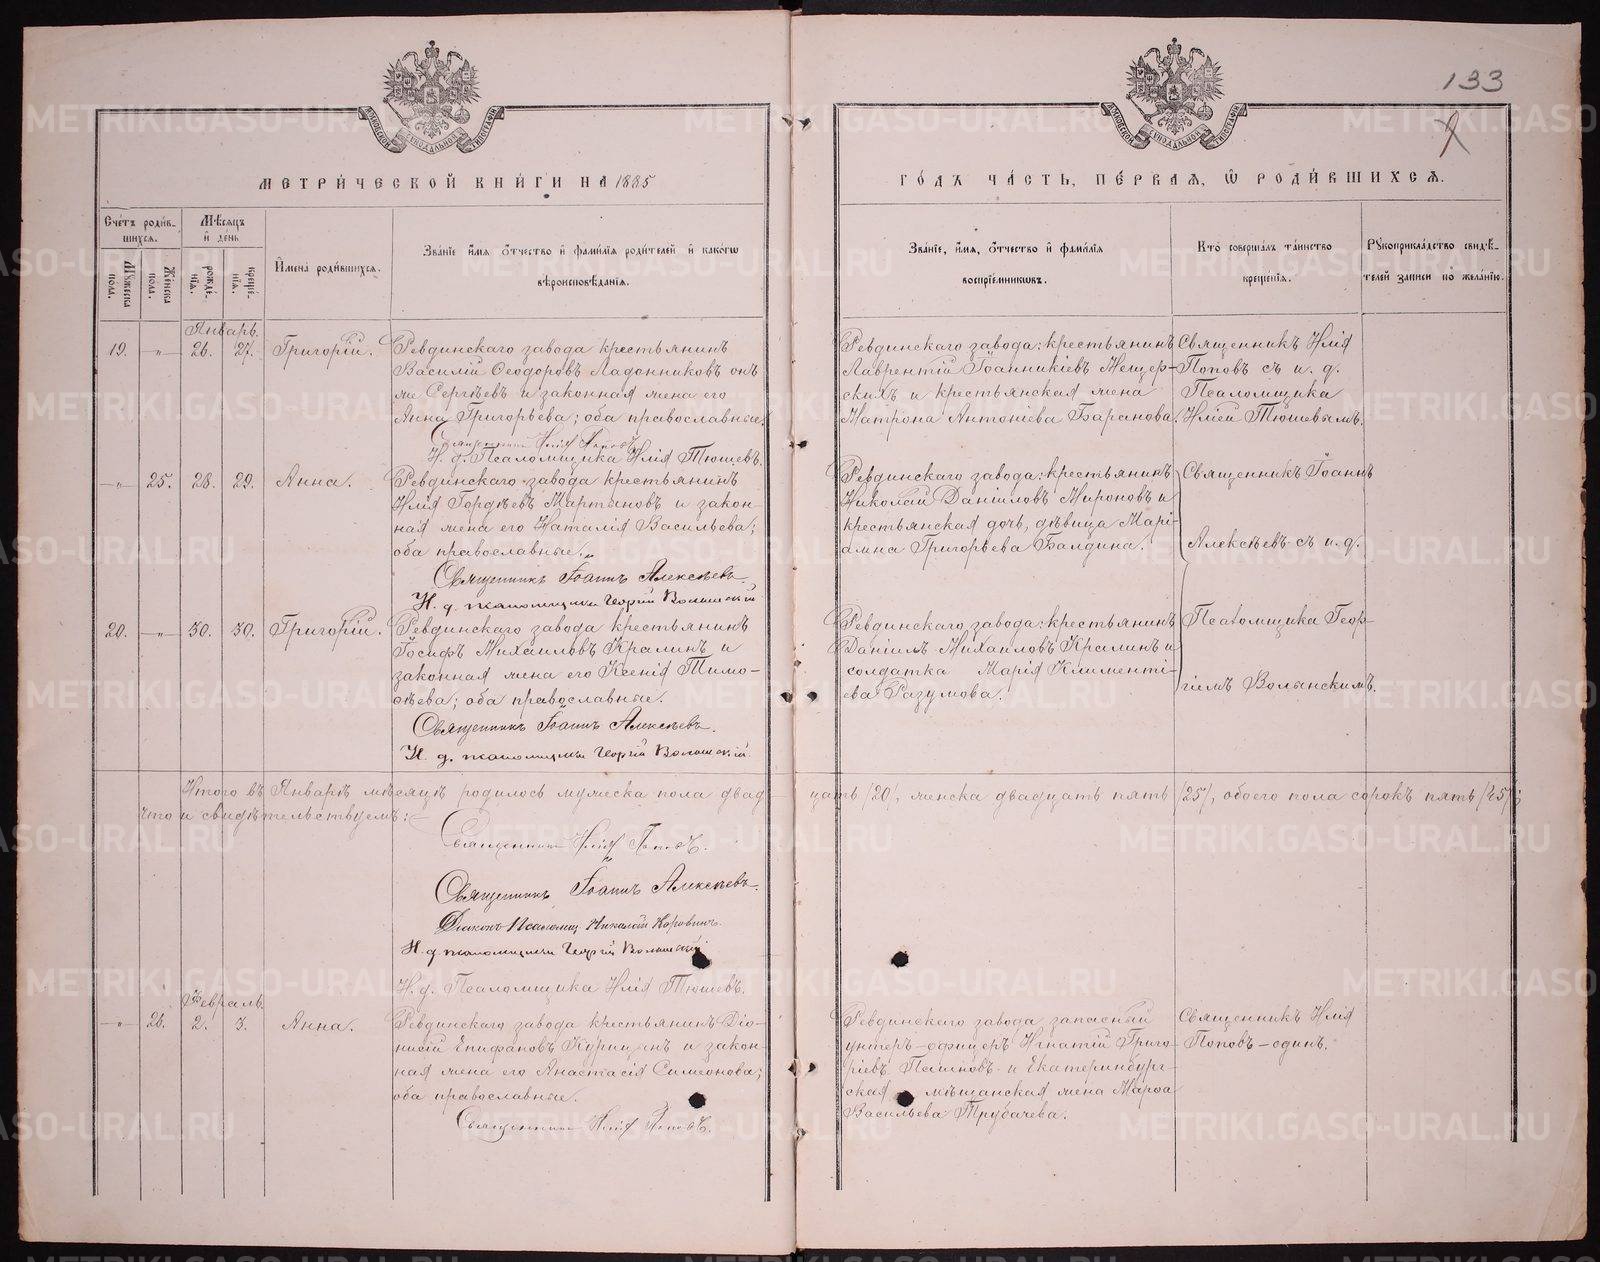 133
МОСКОВСКОЙ СѴНОДАЛЬНОЙ ТИПОГРАФІИ
МОСКОВСКОЙ СѴНОДАЛЬНОЙ ТИПОГРАФІИ
МЕТРИ́ЧЕСКОЙ КНИ́ГИ НА 1885
ГО́ДЪ ЧА́СТЬ, ПЕ́РВАЯ, Ѽ РОДИ́ВШИХСЯ.
Сче́тъ роди́в-
шихся.
Мѣсяцъ
и҆ де́нь
Мꙋжеска по́ла.
Же́нска по́ла.
рожде́-
нїя.
креще́-
нїя.
И҆мена̀ роди́вшихся.
Зва́нїе и҆́мя ѻ҆́тчество и҆ фами́лїя роди́телей и҆ како́гѡ
вѣроисповѣ́данїя.
Зва́нїе, и҆́мя, ѻ҆́тчество и҆ фами́лїя
воспрїе́мниковъ.
Кто̀ соверша́лъ та́инство
креще́нїя.
Рꙋкоприкла́дство свидѣ́-
телей за́писи по жела́нїю.
Январь.
19. -„- 26. 27. Григорій.
Ревдинскаго завода крестьянинъ
Василій Ѳеодоровъ Ладонниковъ онъ
же Сергѣевъ и законная жена его
Анна Григорьева; оба православные.
Священникъ Илія Поповъ
И. д. Псаломщика Илія Тюшевъ.
Ревдинскаго завода: крестьянинъ
Лаврентій Іоанникіевъ Мещер-
скихъ и крестьянская жена
Матрона Антоніева Баранова.
Священникъ Илія
Поповъ съ и. д.
Псаломщика
Иліей Тюшевымъ.
-„- 25. 28. 29. Анна.
Ревдинскаго завода крестьянинъ
Илія Гордѣевъ Мартыновъ и закон-
ная жена его Наталія Васильева;
оба православные.
Священникъ Іоаннъ Алексѣевъ
И. д. псаломщика Георгій Волынскій
Ревдинскаго завода: крестьянинъ
Николай Даніиловъ Мироновъ и
крестьянская дочь, дѣвица Марі-
амна Григорьева Балдина.
Священникъ Іоаннъ
Алексѣевъ съ и. д.
20. -„- 30. 30. Григорій.
Ревдинскаго завода крестьянинъ
Іосифъ Михаиловъ Кралинъ и
законная жена его Ксенія Тимо-
ѳѣева; оба православные.
Священникъ Іоаннъ Алексѣевъ.
И. д. псаломщика Георгій Волынскій.
Ревдинскаго завода: крестьянинъ
Даніилъ Михаиловъ Кралинъ и
солдатка Марія Клименті-
ева Разумова.
Псаломщика Геор-
гіемъ Волынскимъ.
Итого въ Январѣ мѣсяцѣ родилось мужеска пола двад-
цать /20/, женска двадцать пять /25/, обоего пола сорокъ пять /45/;
что и свидѣтельствуемъ:
Священникъ Илія Поповъ.
Священникъ Іоаннъ Алексѣевъ.
Діаконъ Псаломщ. Николай Коровинъ.
И. д. псаломщика Георгій Волынскій
И. д. Псаломщика Илія Тюшевъ.
Февраль.
-„- 26. 2. 3. Анна.
Ревдинскаго завода крестьянинъ Діо-
нисій Епифановъ Курицынъ и закон-
ная жена его Анастасія Симеонова;
оба православные.
Священникъ Илія Поповъ.
Ревдинскаго завода запасный
унтеръ-офицеръ Игнатій Григо-
ріевъ Пашновъ и Екатеринбург-
ская мѣщанская жена Марѳа
Васильева Трубачева.
Священникъ Илія
Поповъ - одинъ.
METRIKI.GASO-URAL.RU